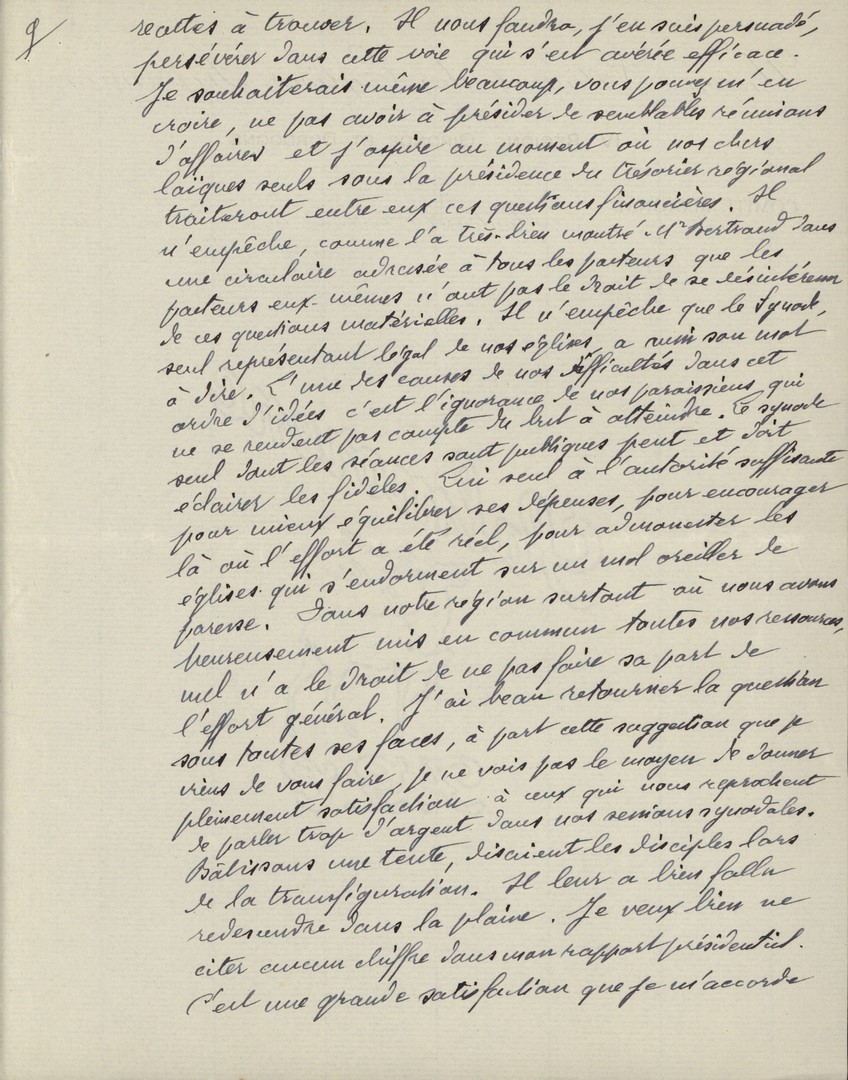 9/
recettes à trouver. Il nous faudra, j'en suis persuadé,
persévérer dans cette voie qui s'est avérée efficace.
Je souhaiterais même beaucoup, vous pouvez m'en
croire, ne pas avoir à présider de semblables réunions
d'affaires et j'aspire au moment où nos chers
laïques seuls sous la présidence du trésorier régional
traiteront entre eux ces questions financières. Il
n'empêche, comme l'a très-bien montré Mr Bertrand dans
une circulaire adressée à tous les pasteurs que les
pasteurs eux-mêmes n'ont pas le droit de se désintéresser
de ces questions matérielles. Il n'empêche que le Synode,
seul représentant légal de nos églises, a son mot
à dire. L'une des causes de nos difficultés dans cet
ordre d'idées c'est l'ignorance de nos paroissiens qui
ne se rendent pas compte du but à atteindre. Le synode
seul dont les séances sont publiques peut et doit
éclairer les fidèles. Lui seul à l'autorité suffisante
pour mieux équilibrer ses dépenses, pour encourager
là où l'effort a été réel, pour admonester les
églises qui s'endorment sur un mol oreiller de
paresse. Dans notre région surtout où nous avons
heureusement mis en commun toutes nos ressources,
nul n'a le droit de ne pas faire sa part de
l'effort général. J'ai beau retourner la question
sous toutes ses faces, à part cette suggestion que je
viens de vous faire, je ne vois pas le moyen de donner
pleinement satisfaction à ceux qui nous reprochent
de parler trop d'argent dans nos sessions synodales.
Bâtissons une tente, disaient les disciples lors
de la transfiguration. Il leur a bien fallu
redescendre dans la plaine. Je veux bien ne
citer aucun chiffre dans mon rapport présidentiel.
C'est une grande satisfaction que je m'accorde